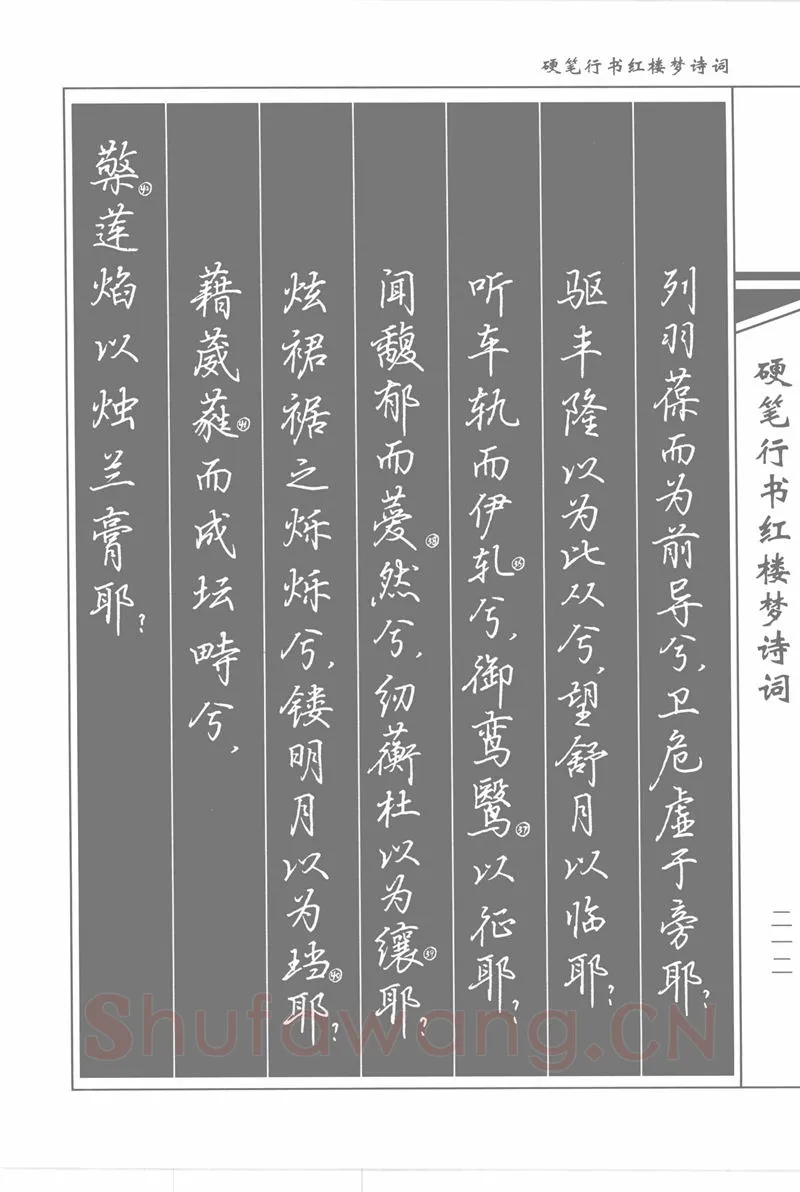 硬笔行书红楼梦诗词
列羽葆而为前导兮，卫危虚于旁耶？
驱丰隆以为比从兮，望舒月以临耶？
听车轨而伊轧㊱兮，御鸾鹥㊲以征耶？
闻馥郁而薆㊳然兮，纫蘅杜以为纕㊴耶？
炫裙裾之烁烁兮，镂明月以为珰㊵耶？
藉葳蕤㊶而成坛畤兮，
檠㊷莲焰以烛兰膏耶？
硬笔行书红楼梦诗词
二一二
Shufawang.CN